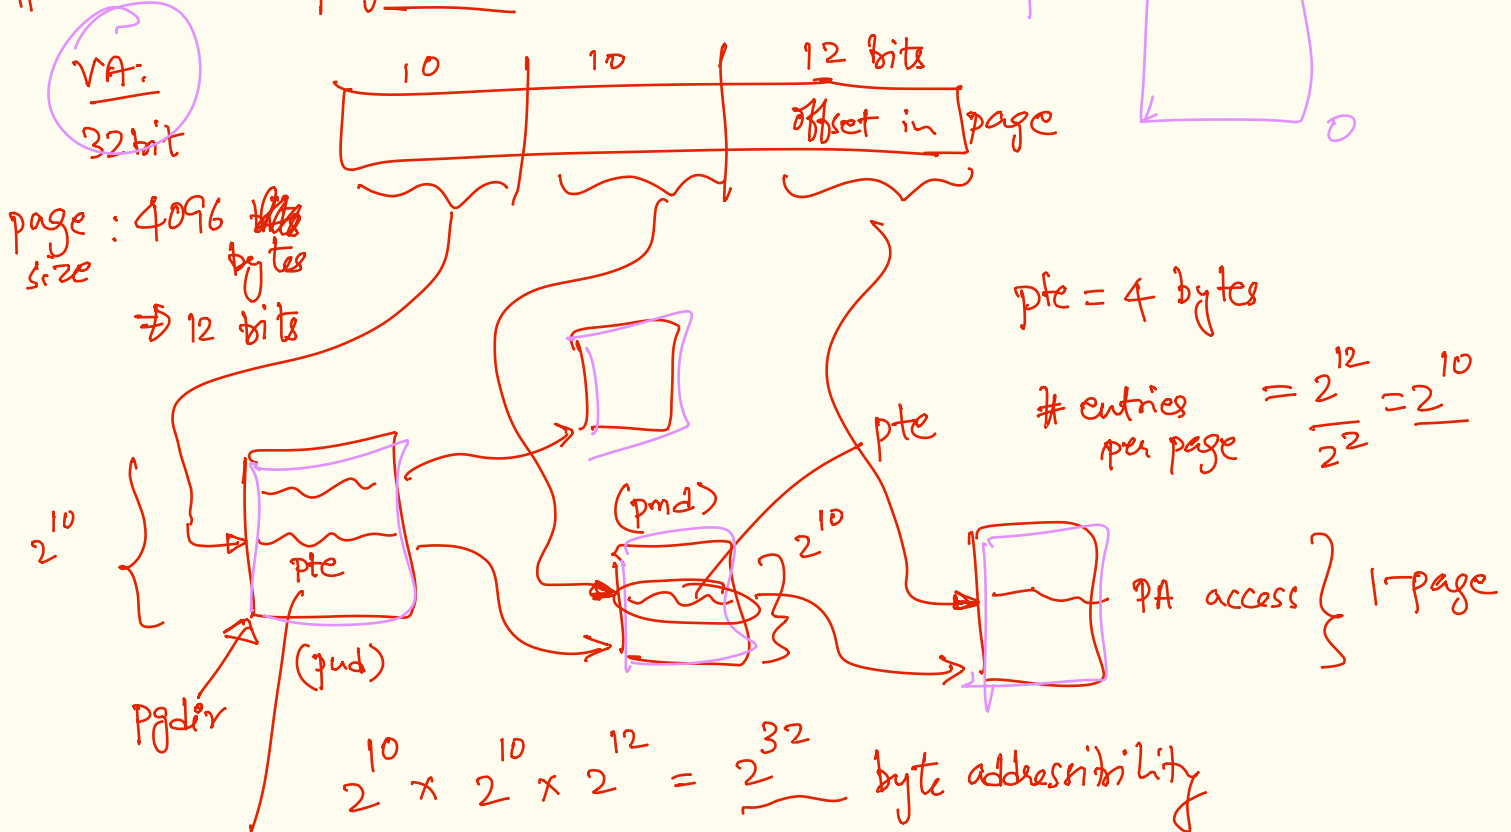 VA:
32 bit
10 10 12 bits
offset in page
0
page size : 4096 bytes
⇒ 12 bits
pte = 4 bytes
# entries per page = 2^12 / 2^2 = 2^10
pte
(pmd)
2^10
2^10
pte
PA access
1-page
(pud)
Pgdir
2^10 x 2^10 x 2^12 = 2^32 byte addressibility